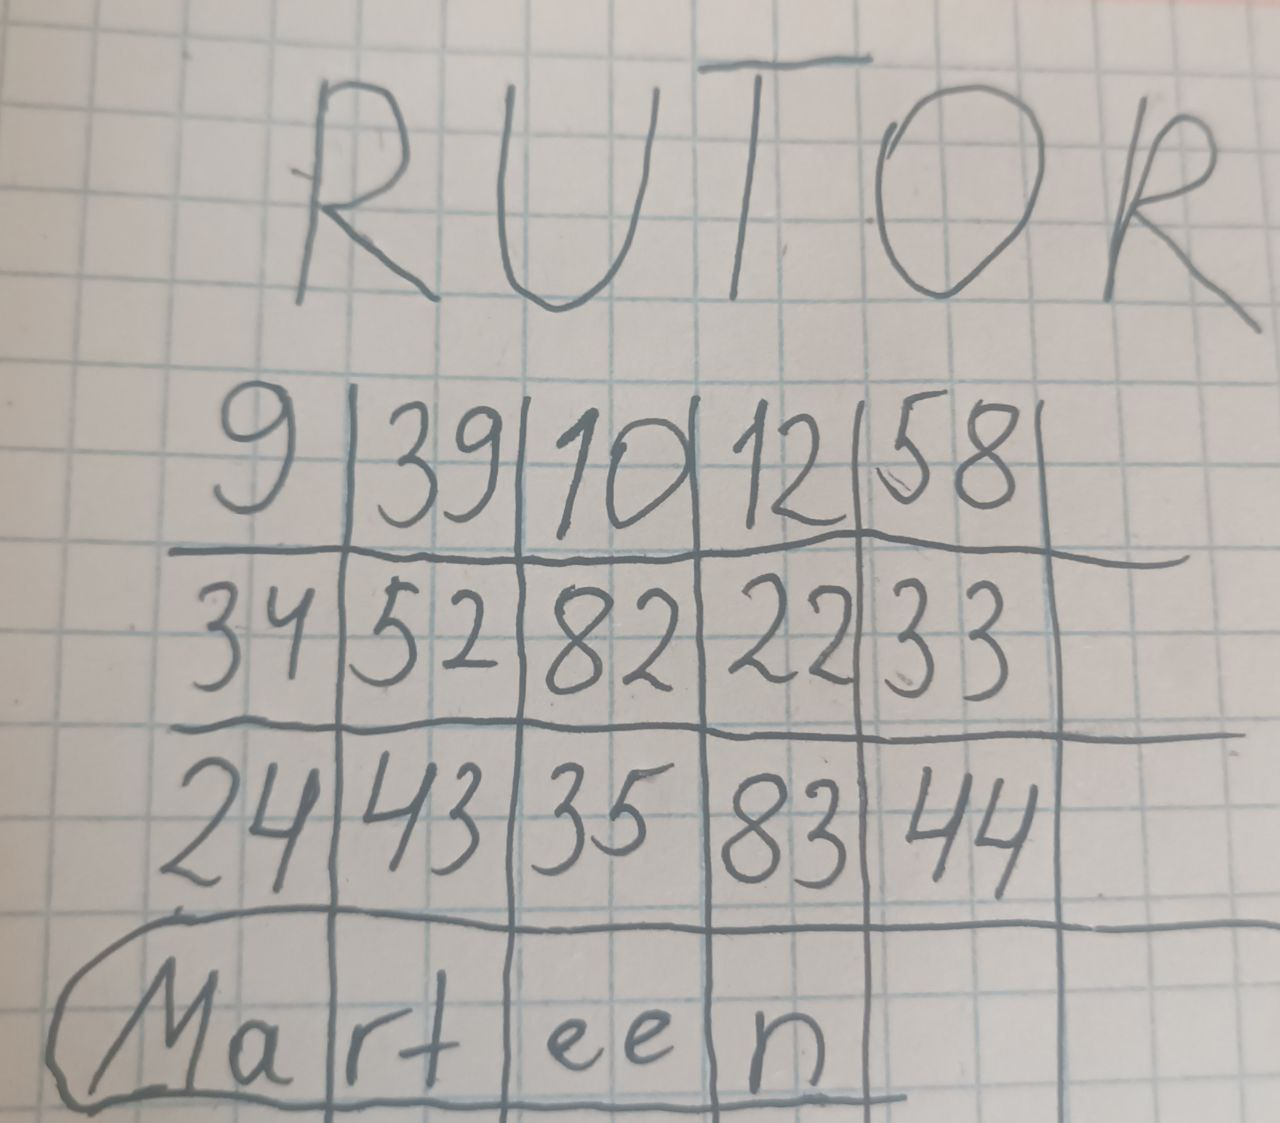 RUTOR
9 39 10 12 58
34 52 82 22 33
24 43 35 83 44
Marteen